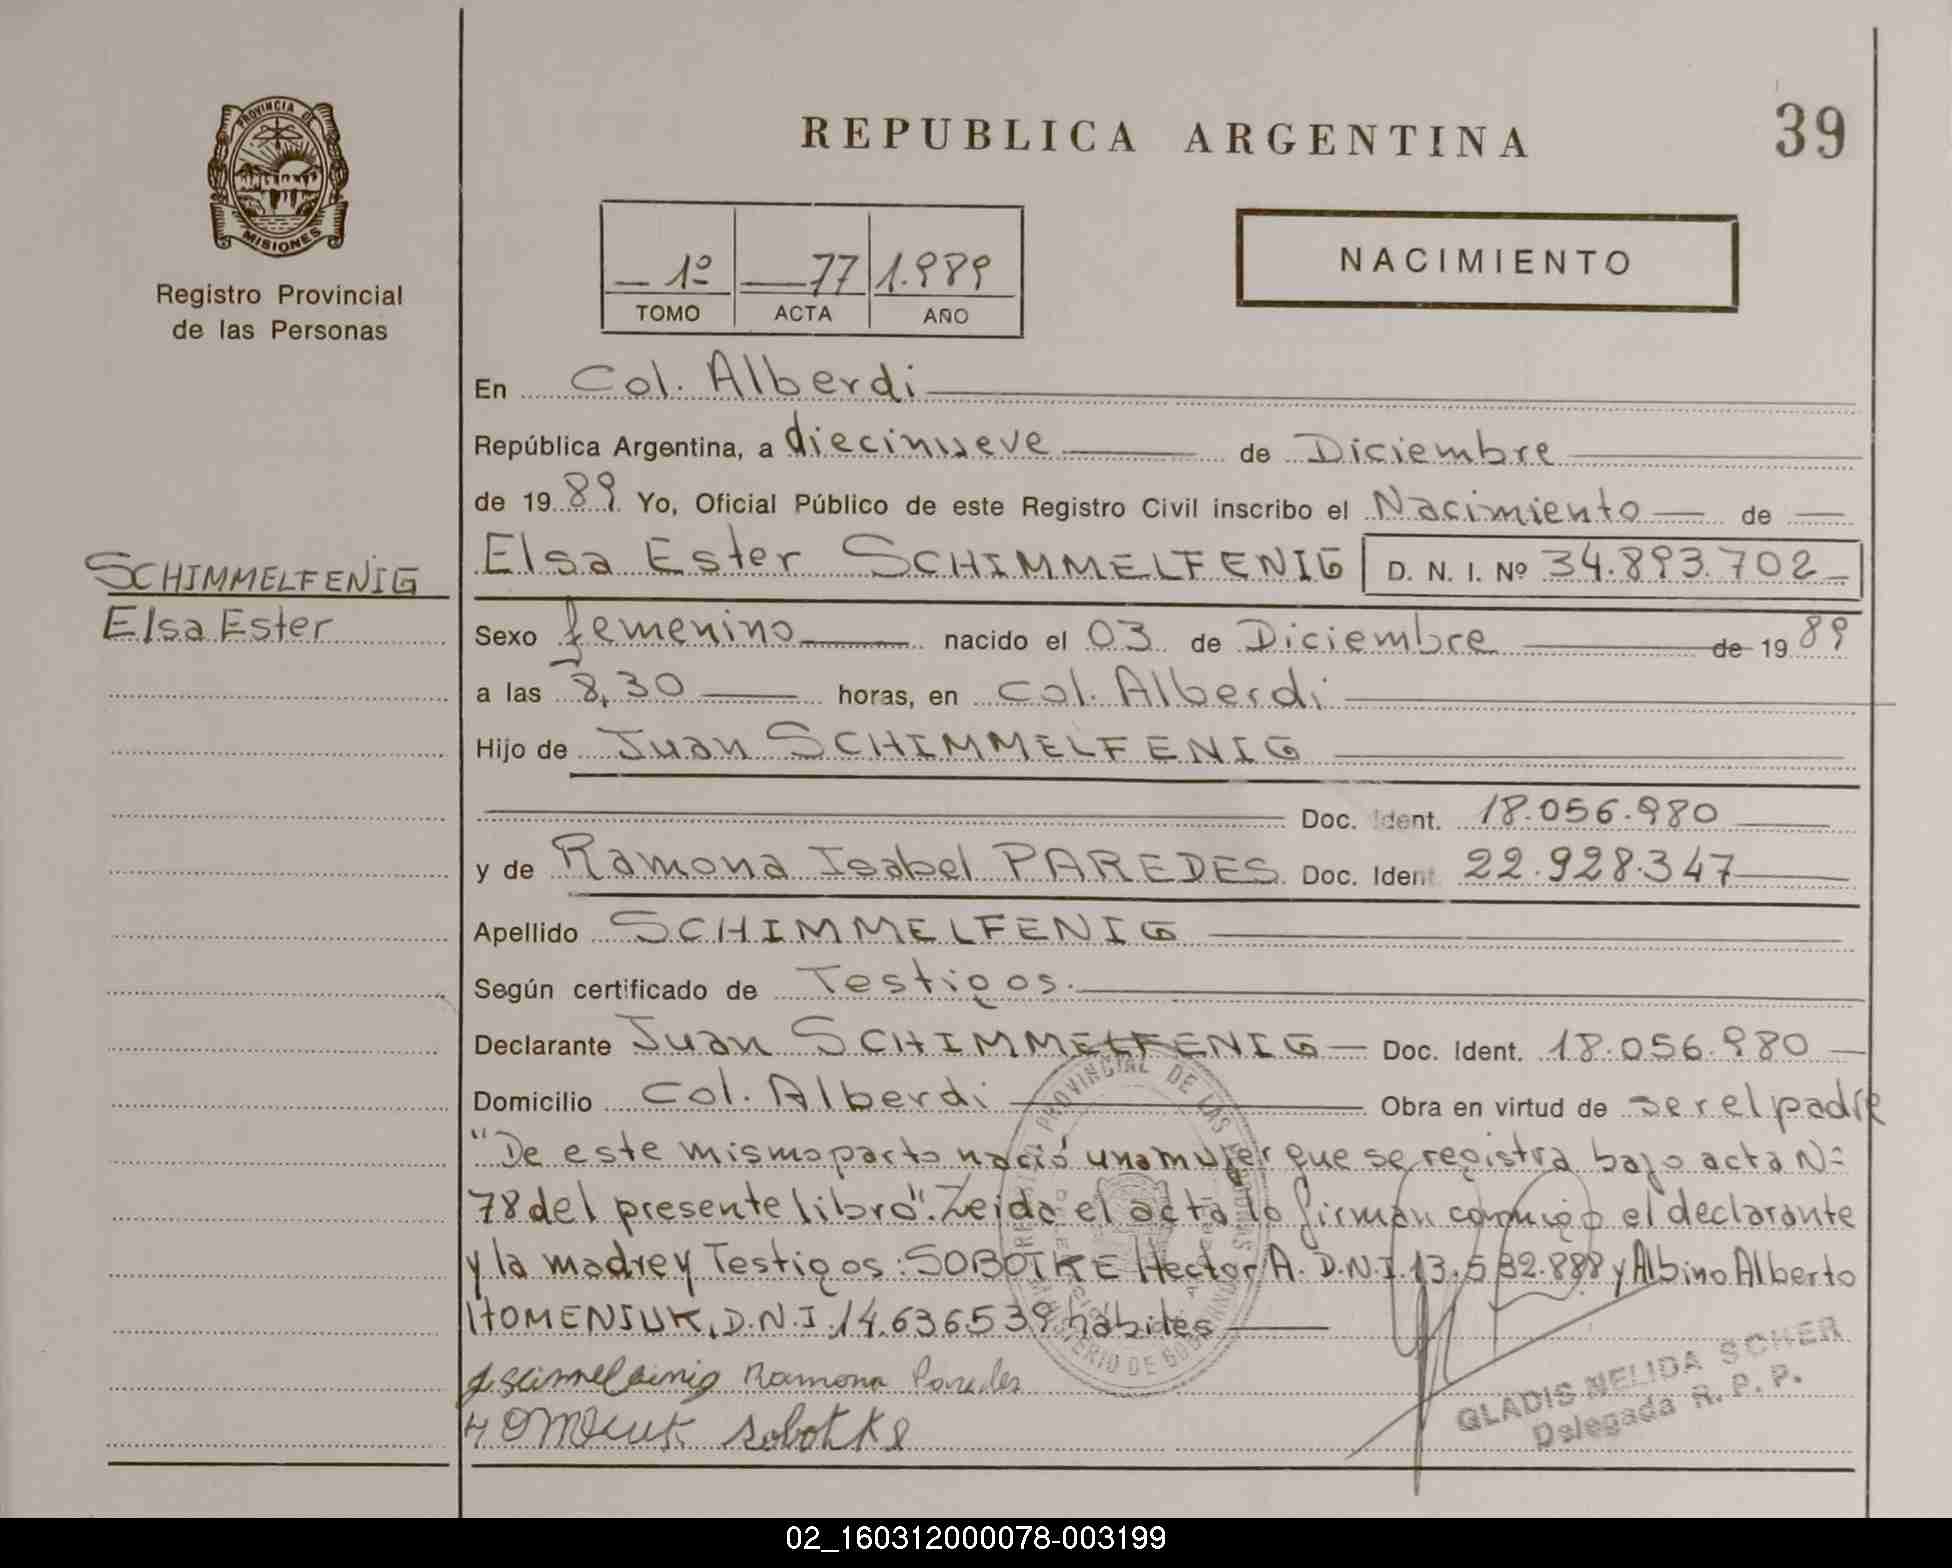 PROVINCIA DE
MISIONES
Registro Provincial
de las Personas
REPUBLICA ARGENTINA
39
1º 77 1.989
TOMO ACTA AÑO
NACIMIENTO
En Col. Alberdi
República Argentina, a diecinueve de Diciembre
de 19 89 Yo, Oficial Público de este Registro Civil inscribo el Nacimiento de
SCHIMMELFENIG
Elsa Ester
Elsa Ester SCHIMMELFENIG D. N. I. Nº 34.893.702
Sexo femenino nacido el 03 de Diciembre de 19 89
a las 8,30 horas, en Col. Alberdi
Hijo de Juan SCHIMMELFENIG
Doc. Ident. 18.056.980
y de Ramona Isabel PAREDES Doc. Ident 22.928.347
Apellido SCHIMMELFENIG
Según certificado de Testigos.
Declarante Juan SCHIMMELFENIG Doc. Ident. 18.056.980
Domicilio Col. Alberdi Obra en virtud de ser el padre
"De este mismo parto nació una mujer que se registra bajo acta Nº
78 del presente libro". Leida el acta lo firman conmigo el declarante
y la madre y Testigos: SOBOTKE Hector A. D.N.I. 13.582.888 y Albino Alberto
HOMENIUK, D.N.I. 14.636.539 hábiles
Ramona Paredes
Sobotke
GLADIS NELIDA SCHER
Delegada R. P. P.
02_160312000078-003199